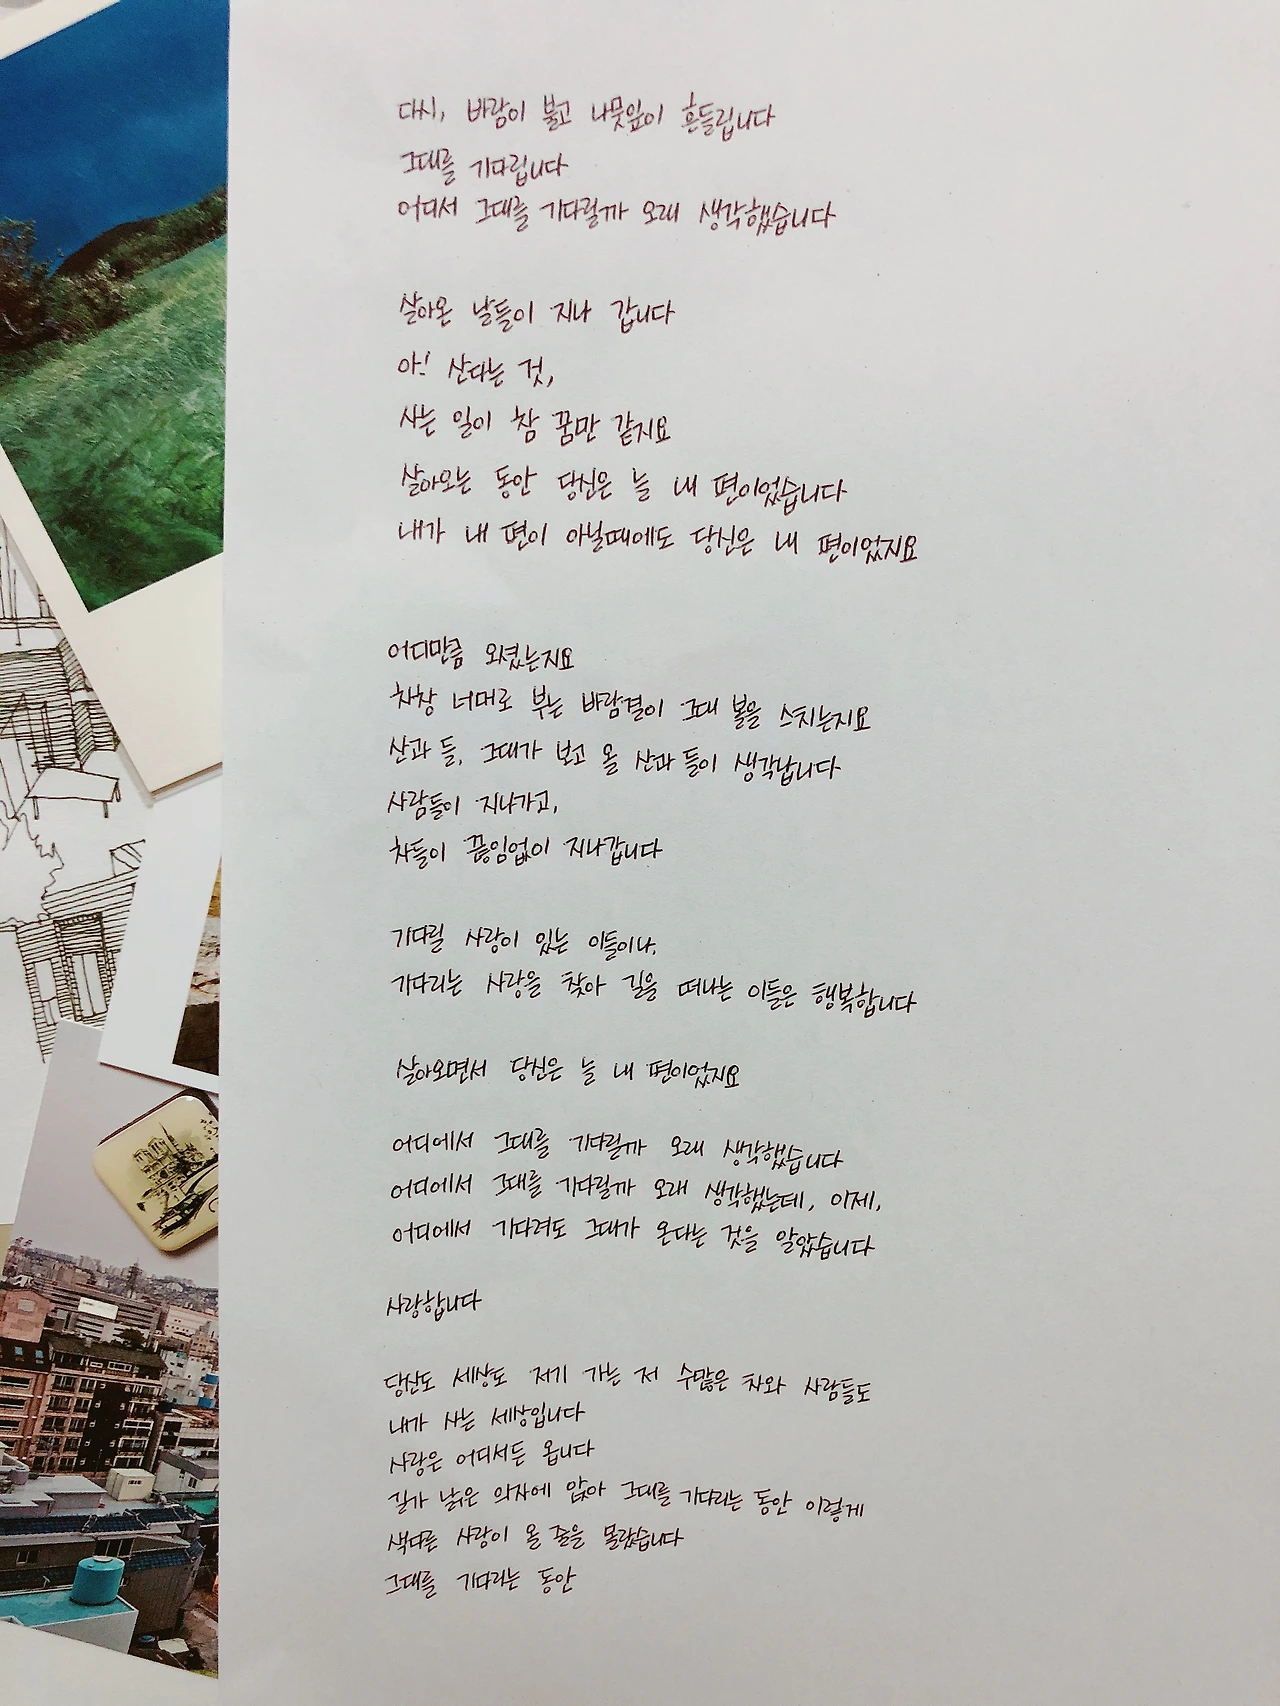 다시, 바람이 불고 나뭇잎이 흔들립니다
그대를 기다립니다
어디서 그대를 기다릴까 오래 생각했습니다
살아온 날들이 지나 갑니다
아! 산다는 것,
사는 일이 참 꿈만 같지요
살아오는 동안 당신은 늘 내 편이었습니다
내가 내 편이 아닐때에도 당신은 내 편이었지요
어디만큼 오셨는지요
차창 너머로 부는 바람결이 그대 볼을 스치는지요
산과 들, 그대가 보고 올 산과 들이 생각납니다
사람들이 지나가고,
차들이 끊임없이 지나갑니다
기다릴 사랑이 있는 이들이나,
기다리는 사랑을 찾아 길을 떠나는 이들은 행복합니다
살아오면서 당신은 늘 내 편이었지요
어디에서 그대를 기다릴까 오래 생각했습니다
어디에서 그대를 기다릴까 오래 생각했는데, 이제,
어디에서 기다려도 그대가 온다는 것을 알았습니다
사랑합니다
당산도 세상도 저기 가는 저 수많은 차와 사람들도
내가 사는 세상입니다
사랑은 어디서든 옵니다
길가 낡은 의자에 앉아 그대를 기다리는 동안 이렇게
색다른 사랑이 올 줄을 몰랐습니다
그대를 기다리는 동안